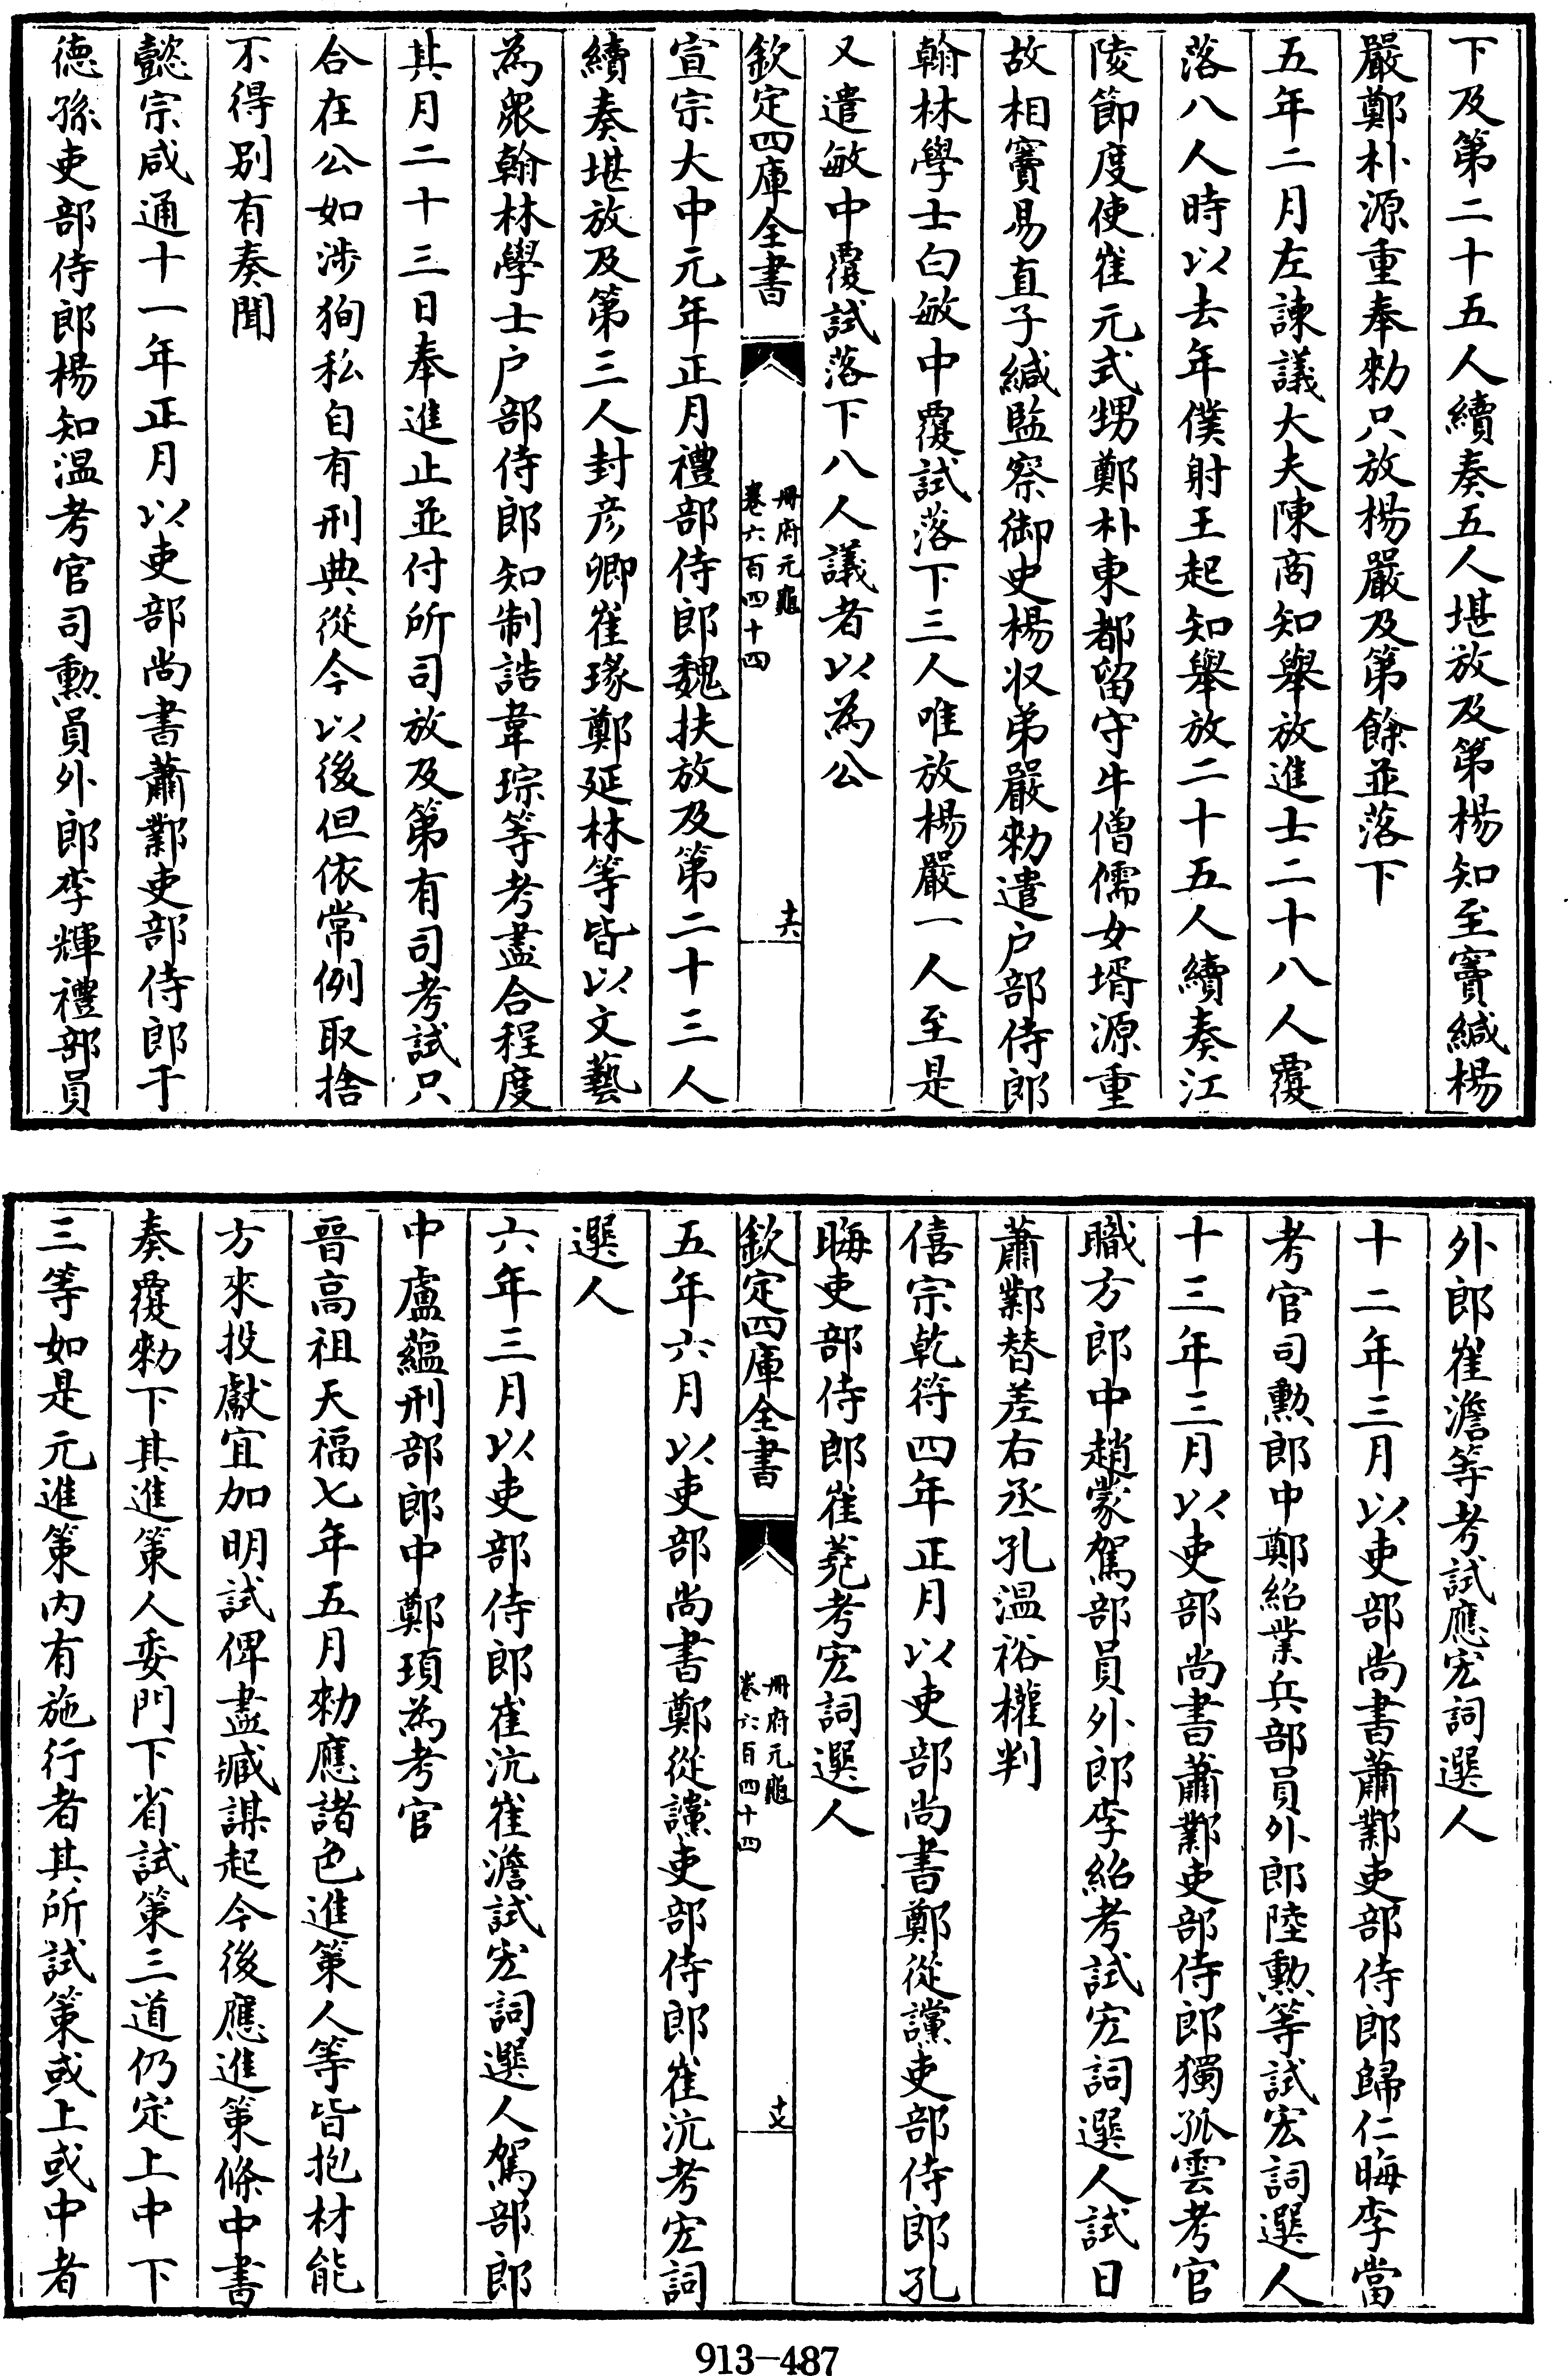 下及第二十五人續奏五人堪放及第楊知至竇緘楊
嚴鄭朴源重奉勑只放楊嚴及第餘並落下
五年二月左諫議大夫陳商知舉放進士二十八人覆
落八人時以去年僕射王起知舉放二十五人續奏江
陵節度使崔元式甥鄭朴東都留守牛僧儒女壻源重
故相竇易直子緘監察御史楊收弟嚴勑遣户部侍郎
翰林學士白敏中覆試落下三人唯放楊嚴一人至是
又遣敏中覆試落下八人議者以為公
欽定四庫全書
冊府元龜
卷六百四十四
十六
宣宗大中元年正月禮部侍郎魏扶放及第二十三人
續奏堪放及第三人封彦卿崔瑑鄭延林等皆以文藝
為衆翰林學士户部侍郎知制誥韋琮等考盡合程度
其月二十三日奉進止並付所司放及第有司考試只
合在公如涉狥私自有刑典從今以後但依常例取捨
不得别有奏聞
懿宗咸通十一年正月以吏部尚書蕭鄴吏部侍郎于
德孫吏部侍郎楊知温考官司勲員外郎李輝禮部員
外郎崔澹等考試應宏詞選人
十二年三月以吏部尚書蕭鄴吏部侍郎歸仁晦李當
考官司勲郎中鄭紹業兵部員外郎陸勲等試宏詞選人
十三年三月以吏部尚書蕭鄴吏部侍郎獨孤雲考官
職方郎中趙蒙駕部員外郎李紹考試宏詞選人試日
蕭鄴替差右丞孔温裕權判
僖宗乾符四年正月以吏部尚書鄭從讜吏部侍郎孔
晦吏部侍郎崔蕘考宏詞選人
欽定四庫全書
冊府元龜
卷六百四十四
十七
五年六月以吏部尚書鄭從讜吏部侍郎崔沆考宏詞
選人
六年三月以吏部侍郎崔沆崔澹試宏詞選人駕部郎
中盧蘊刑部郎中鄭頊為考官
晉高祖天福七年五月勑應諸色進策人等皆抱材能
方來投獻宜加明試俾盡臧謀起今後應進策條中書
奏覆勑下其進策人委門下省試策三道仍定上中下
三等如是元進策内有施行者其所試策或上或中者
913-487